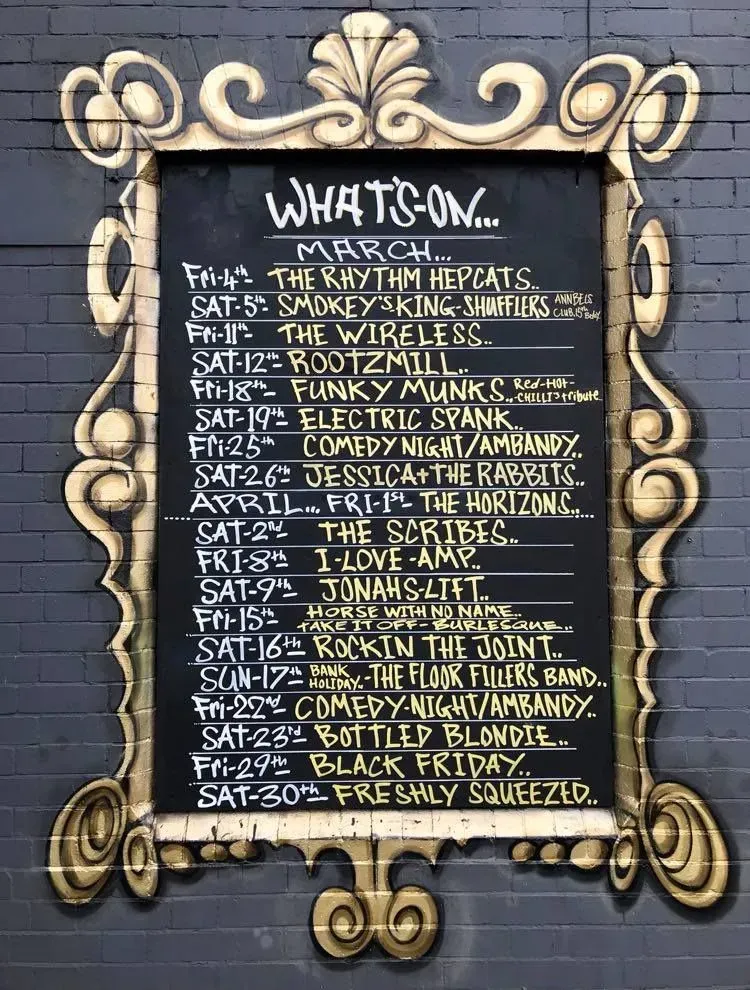 WHAT'S-ON...
MARCH...
Fri-4th THE RHYTHM HEPCATS..
SAT-5th SMOKEY'S-KING-SHUFFLERS ANNBELS
CLUB, 15th Bday.
Fri-11th THE WIRELESS..
SAT-12th ROOTZMILL..
Fri-18th- FUNKY MUNKS.. Red-HOT-
CHILLI's tribute
SAT-19th ELECTRIC SPANK..
Fri-25th COMEDY NIGHT/AMBANDY..
SAT-26th JESSICA+THE RABBITS..
APRIL... FRI-1st- THE HORIZONS..
SAT-2nd THE SCRIBES..
FRI-8th I-LOVE-AMP..
SAT-9th JONAHS-LIFT..
Fri-15th HORSE WITH NO NAME..
TAKE IT OFF-BURLESQUE..
SAT-16th ROCKIN THE JOINT..
SUN-17th BANK
HOLIDAY..-THE FLOOR FILLERS BAND..
Fri-22nd COMEDY-NIGHT/AMBANDY..
SAT-23rd BOTTLED BLONDIE..
Fri-29th BLACK FRIDAY..
SAT-30th FRESHLY SQUEEZED..